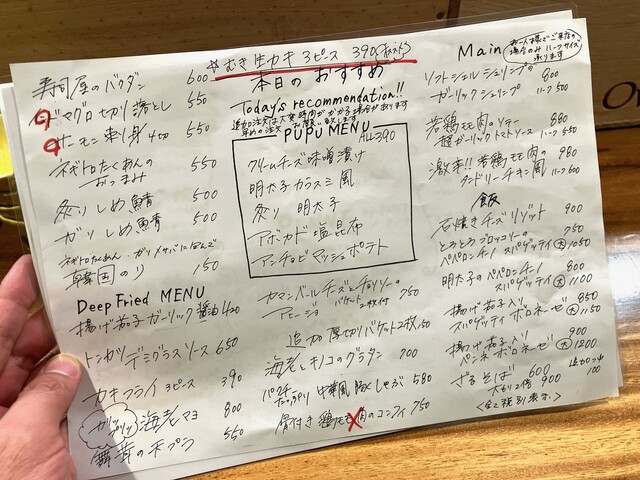 ☆むき生カキ 3ピース 390(ポン酢)
寿司屋のバクダン 600
本マグロ切り落とし 550
サーモン刺身 4切 550
ネギトロたくあんの
おつまみ 550
炙りしめ鯖 500
ガリしめ鯖 500
ネギトロたくあん・ガリメサバに
韓国のり 150
Deep Fried MENU
揚げ茄子ガーリック醤油 420
トンカツデミグラスソース 650
カキフライ 3ピース 390
海老マヨ 800
舞茸の天プラ 550
本日のおすすめ
Today's recommendation!!
PUPU MENU
ALL390
クリームチーズ味噌漬け
明太子カラスミ風
炙り 明太子
アボカド塩昆布
アンチョビマッシュポテト
カマンベールチーズとチョリソーの
アヒージョ バケット2枚付 750
追加 厚切りバケット2枚 150
海老とキノコのグラタン 700
パクチーたっぷり 中華風 豚しゃぶ 580
骨付き鶏モモ肉のコンフィ 750
Main
お一人様でご来店の
場合のみハーフサイズ
承ります
ソフトシェルシュリンプの
ガーリックシュリンプ 800
ハーフ 500
若鶏モモ肉のソテー 980
ガーリックトマトソース ハーフ 550
激辛!!若鶏モモ肉 980
タンドリーチキン風 ハーフ 600
飯
石焼きチーズリゾット 900
とろとろブロッコリーの 750
ペペロンチーノスパゲッティ 大1050
明太子のペペロンチーノ 800
スパゲッティ 大1100
揚げ茄子入り 850
スパゲッティボロネーゼ 大1150
揚げ茄子入り 900
ペンネボロネーゼ 大1200
ざるそば 600
大もり2倍 900
<全て税別表示>